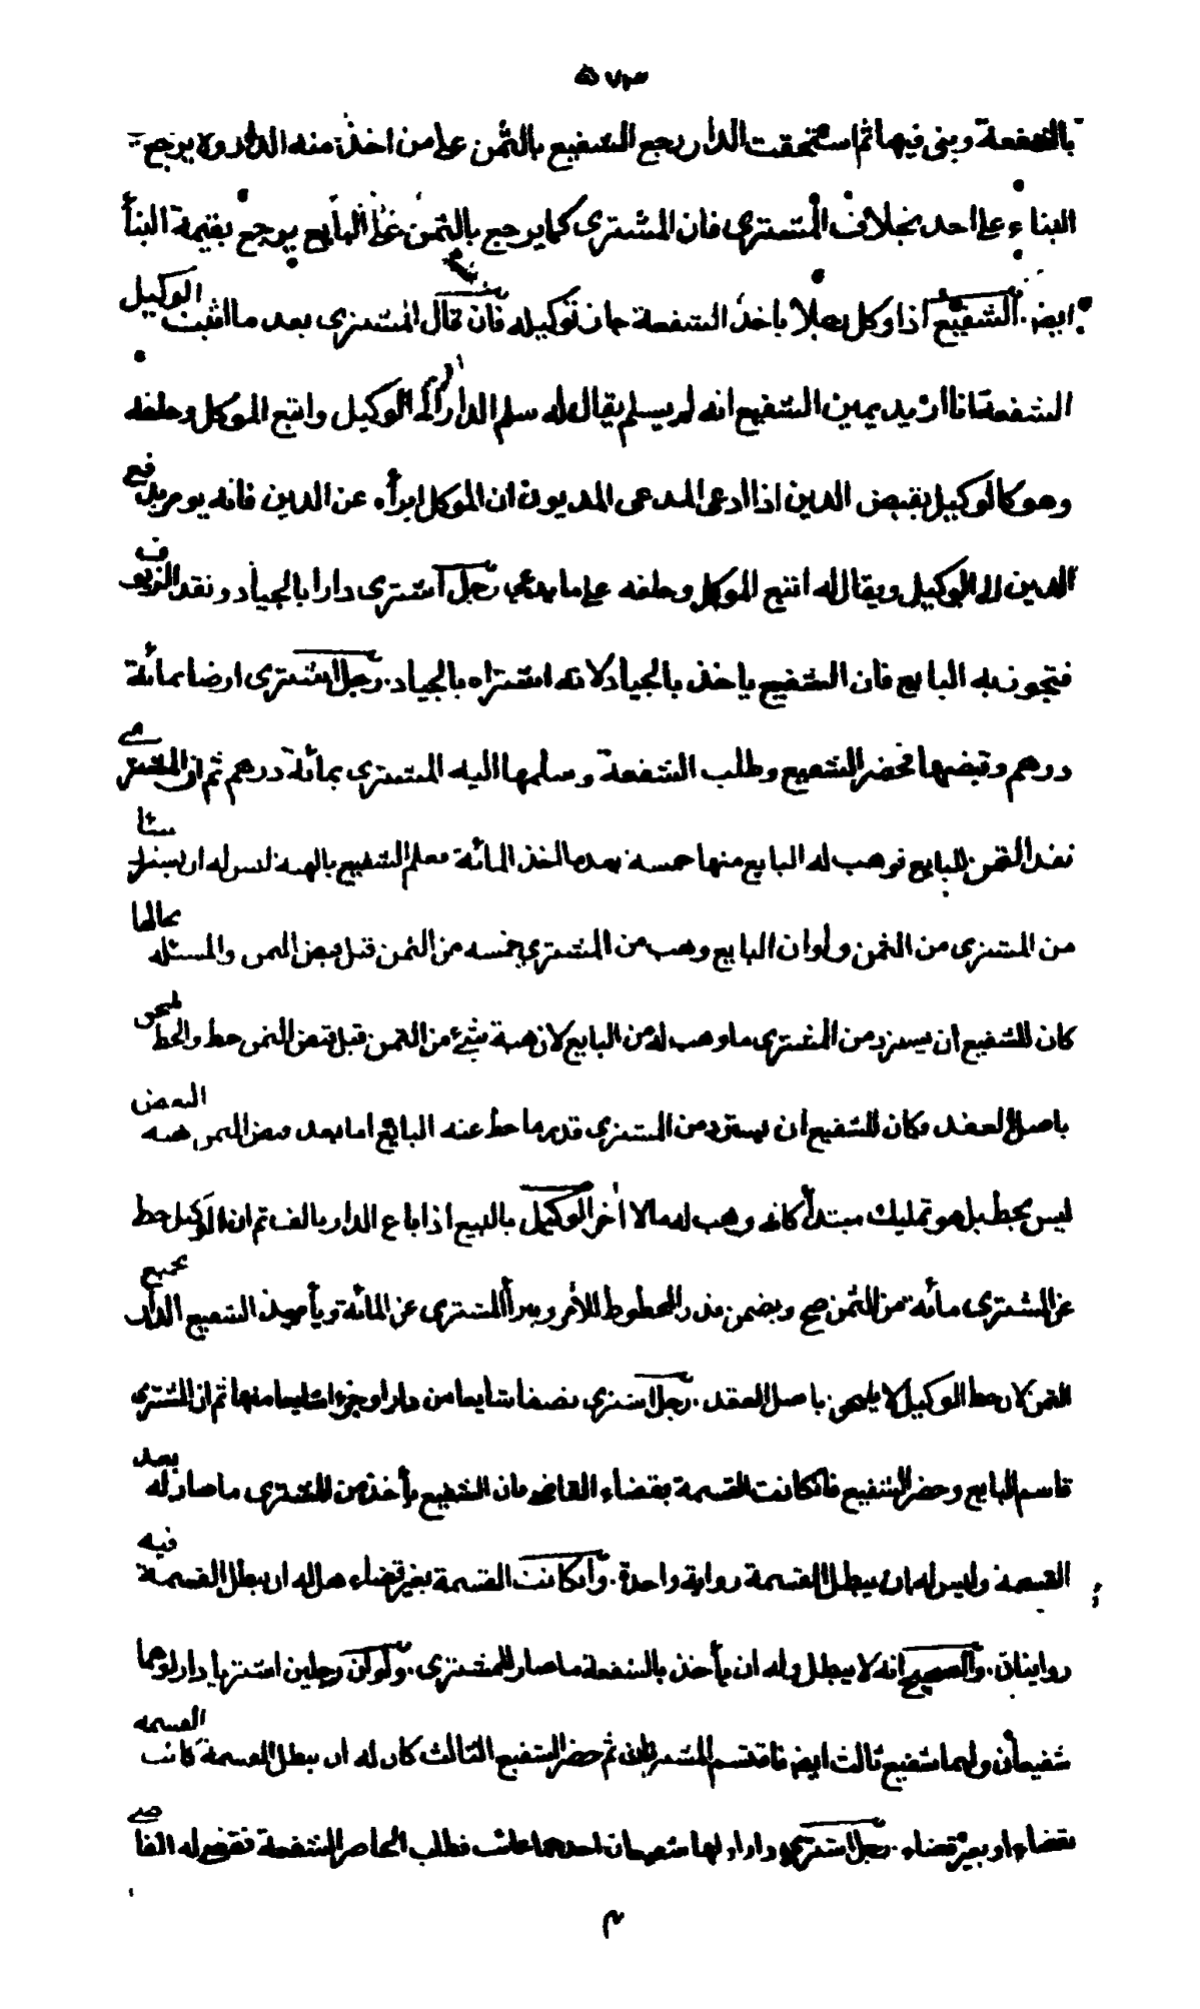 ٥٧٣
بالشفعة وبنى فيها ثم استحقت الدار رجع الشفيع بالثمن على من اخذ منه الدار ولا يرجع
البناء على احد بخلاف المشترى فان المشترى كما يرجع بالثمن على البايع يرجع بقيمة البنأ
ايضا . الشفيع اذا وكل رجلا باخذ الشفعة جاز توكيله فان قال المشترى بعد ما اثبت الوكيل
الشفعة انا اريد يمين الشفيع انه لم يسلم يقال له سلم الدار الى الوكيل واتبع الموكل وحلفه
وهو كالوكيل بقبض الدين اذا ادعى المدعى المديون ان الموكل ابرأه عن الدين فانه يومر بدفع
الدين الى الوكيل ويقال له اتبع الموكل وحلفه على ما يدعى رجل اشترى دارا بالجياد ونقد الزيوف
فتجوز به البايع فان الشفيع ياخذ بالجياد لانه اشتراه بالجياد . رجل اشترى ارضا بمائة
درهم وقبضها فحضر الشفيع وطلب الشفعة وسلمها اليه المشترى بمائة درهم ثم ان المشترى
نقد الثمن للبايع فوهب له البايع منها خمسة بعد ما اخذ المائة فعلم الشفيع بالهبة ليس له ان يسترد شيئا
من المشترى من الثمن ولو ان البايع وهب من المشترى خمسة من الثمن قبل قبض الثمن والمسئلة بحالها
كان للشفيع ان يسترد من المشترى ما وهب له من البايع لان هبة شئ من الثمن قبل قبض الثمن حط والحط يلتحق
باصل العقد فكان للشفيع ان يسترد من المشترى قدر ما حط عنه البايع اما بعد قبض الثمن هبة البعض
ليس بحط بل هو تمليك مبتدأ كانه وهب له مالا اخر الوكيل بالبيع اذا باع الدار بالف ثم ان الوكيل حط
عن المشترى مائة من الثمن صح ويضمن قدر المحطوط للأمر ويبرأ المشترى عن المائة ويأخذ الشفيع الدار بجميع
الثمن لان حط الوكيل لا يلتحق باصل العقد . رجل اشترى نصفا شايعا من دار او جزءا شايعا منها ثم ان المشترى
قاسم البايع وحضر الشفيع فان كانت القسمة بقضاء القاضى فان الشفيع يأخذ من المشترى ما صار له بعد
القسمة وليس له ان يبطل القسمة رواية واحدة . وان كانت القسمة بغير قضاء هل له ان يبطل القسمة فيه
روايتان . والصحيح انه لا يبطل وله ان يأخذ بالشفعة ما صار للمشترى . ولو ان رجلين اشتريا دارا وهما
شفيعان ولهما شفيع ثالث ايضا فاقتسم المشتريان ثم حضر الشفيع الثالث كان له ان يبطل القسمة كانت القسمة
بقضاء او بغير قضاء . رجل اشترى دارا ولها شفيعان احدهما غائب فطلب الحاضر الشفعة فقضى له القاضى